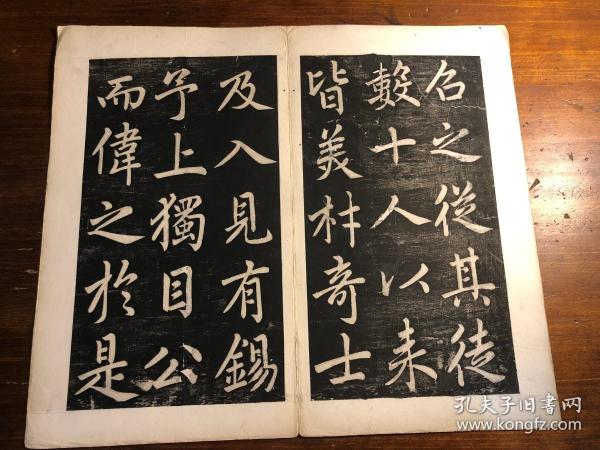 召之從其徒
數十人以来
皆美材奇士
及入見有錫
予上獨目公
而偉之於是
孔夫子旧書网
www.kongfz.com